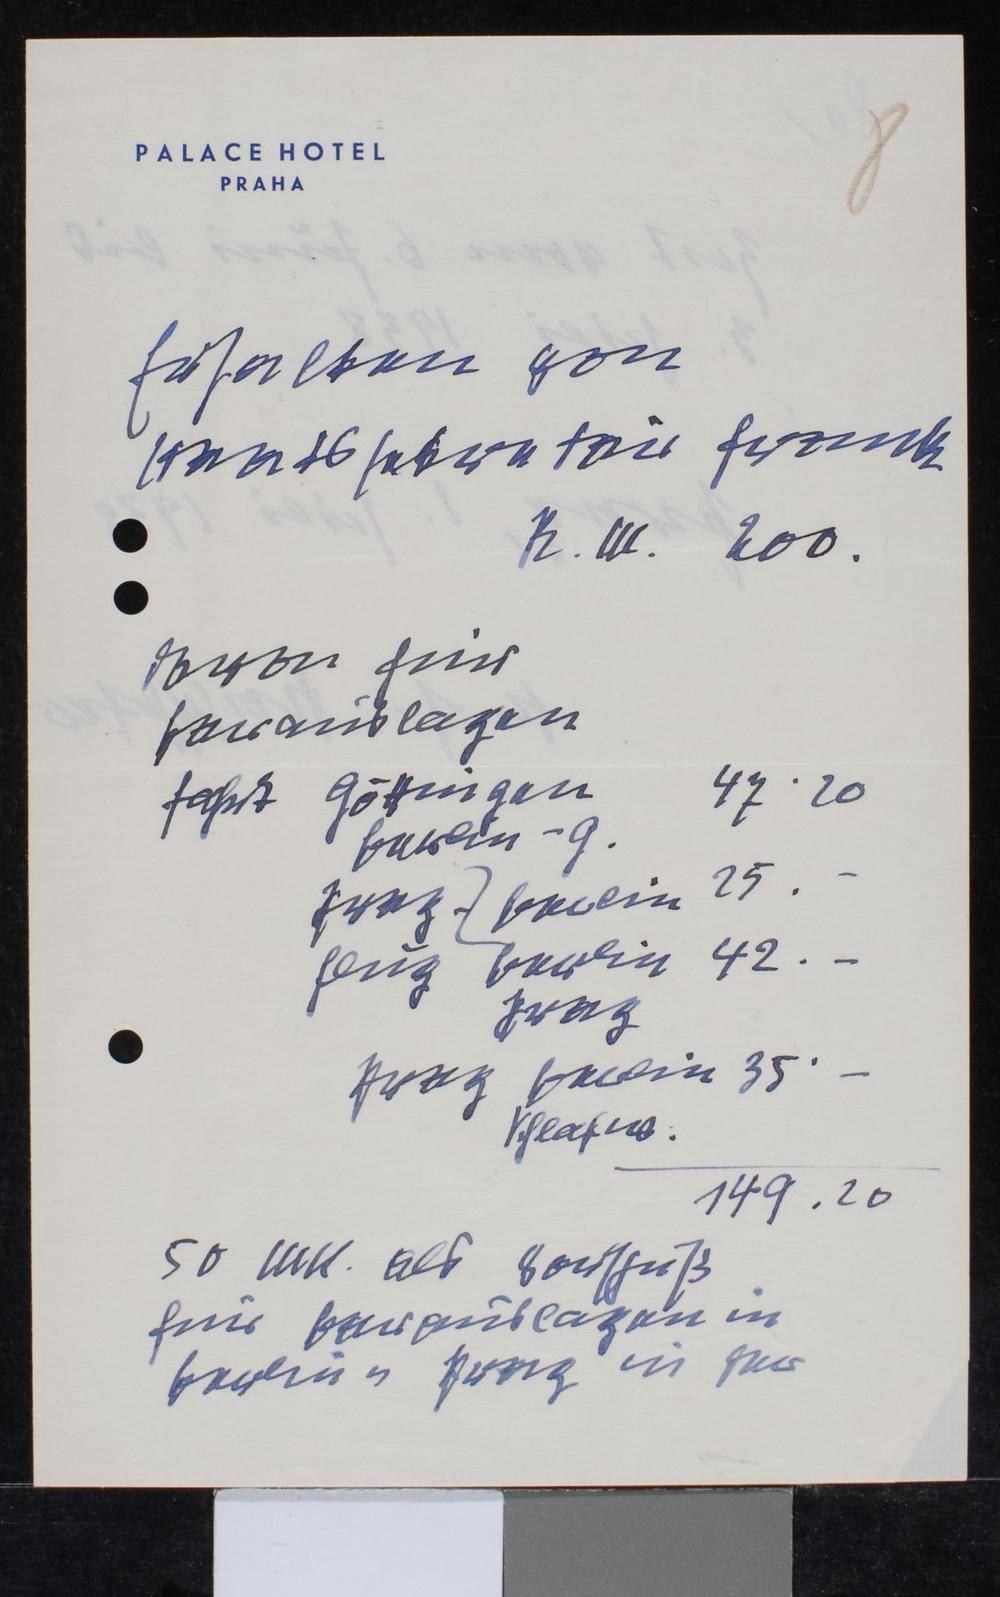 8
PALACE HOTEL
PRAHA
Erhalten von
Staatssekretär Frank
R.M. 200.
davon für
Barauslagen
Fahrt Göttingen 47.20
Berlin - G.
Prag - } Berlin 25. -
Flug Berlin 42. -
Prag
Prag Berlin 35. -
Schlafw.
149.20
50 MK. als Vorschuß
für Barauslagen in
Berlin u Prag in der